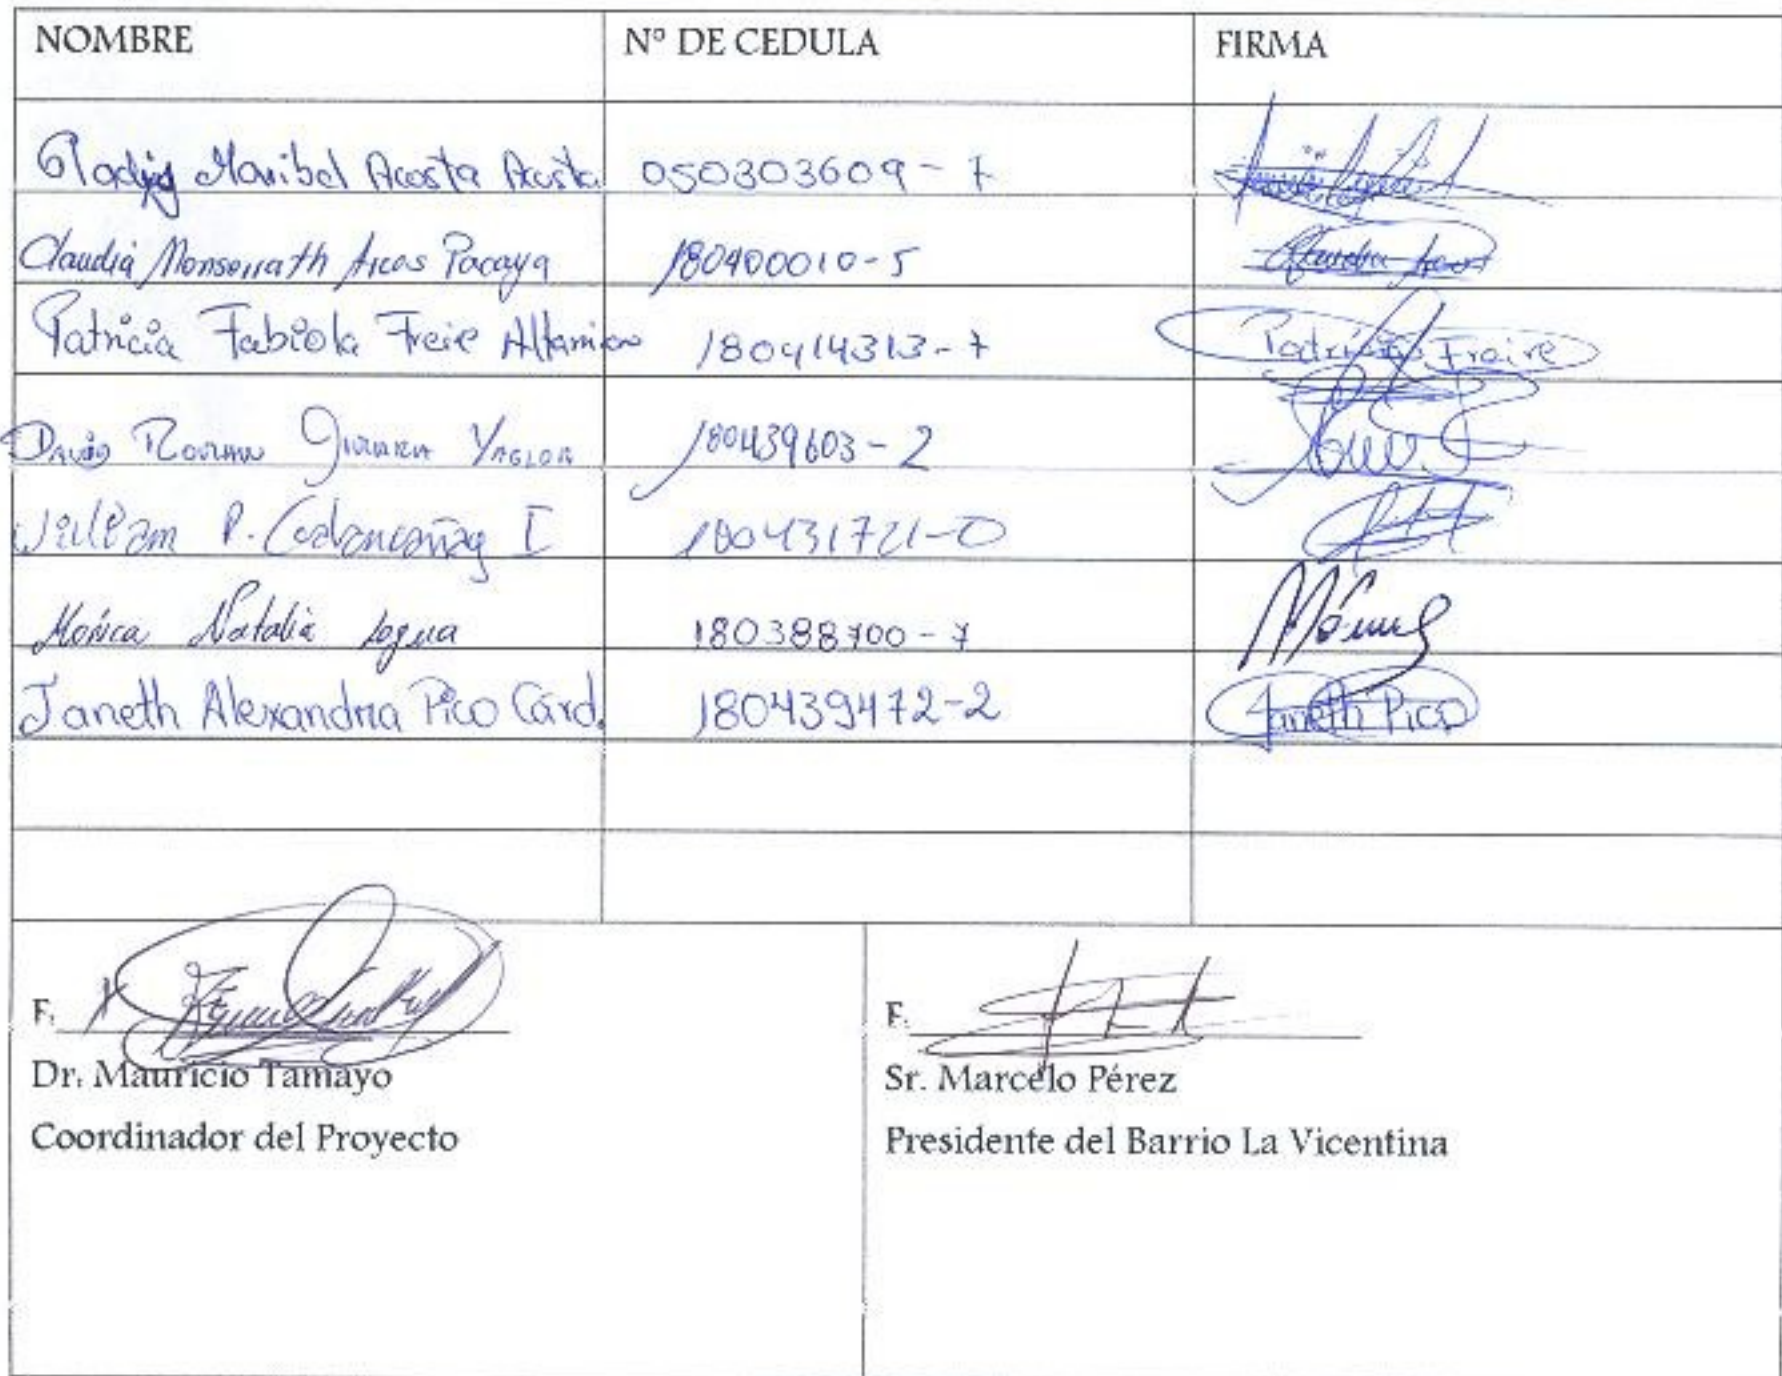 NOMBRE Nº DE CEDULA FIRMA
Gladys Maribel Acosta Acosta 050303609-7
Claudia Monserrath Arcos Pacaya 180400010-5 Claudia Arcos
Patricia Fabiola Freire Altamirano 180414313-7 Patricia Freire
David 180439603-2
William P. I 180431721-0
Mónica Natalia 180388700-7 Mónica
Janeth Alexandra Pico Card. 180439472-2 Janeth Pico
F. F.
Dr. Mauricio Tamayo Sr. Marcelo Pérez
Coordinador del Proyecto Presidente del Barrio La Vicentina